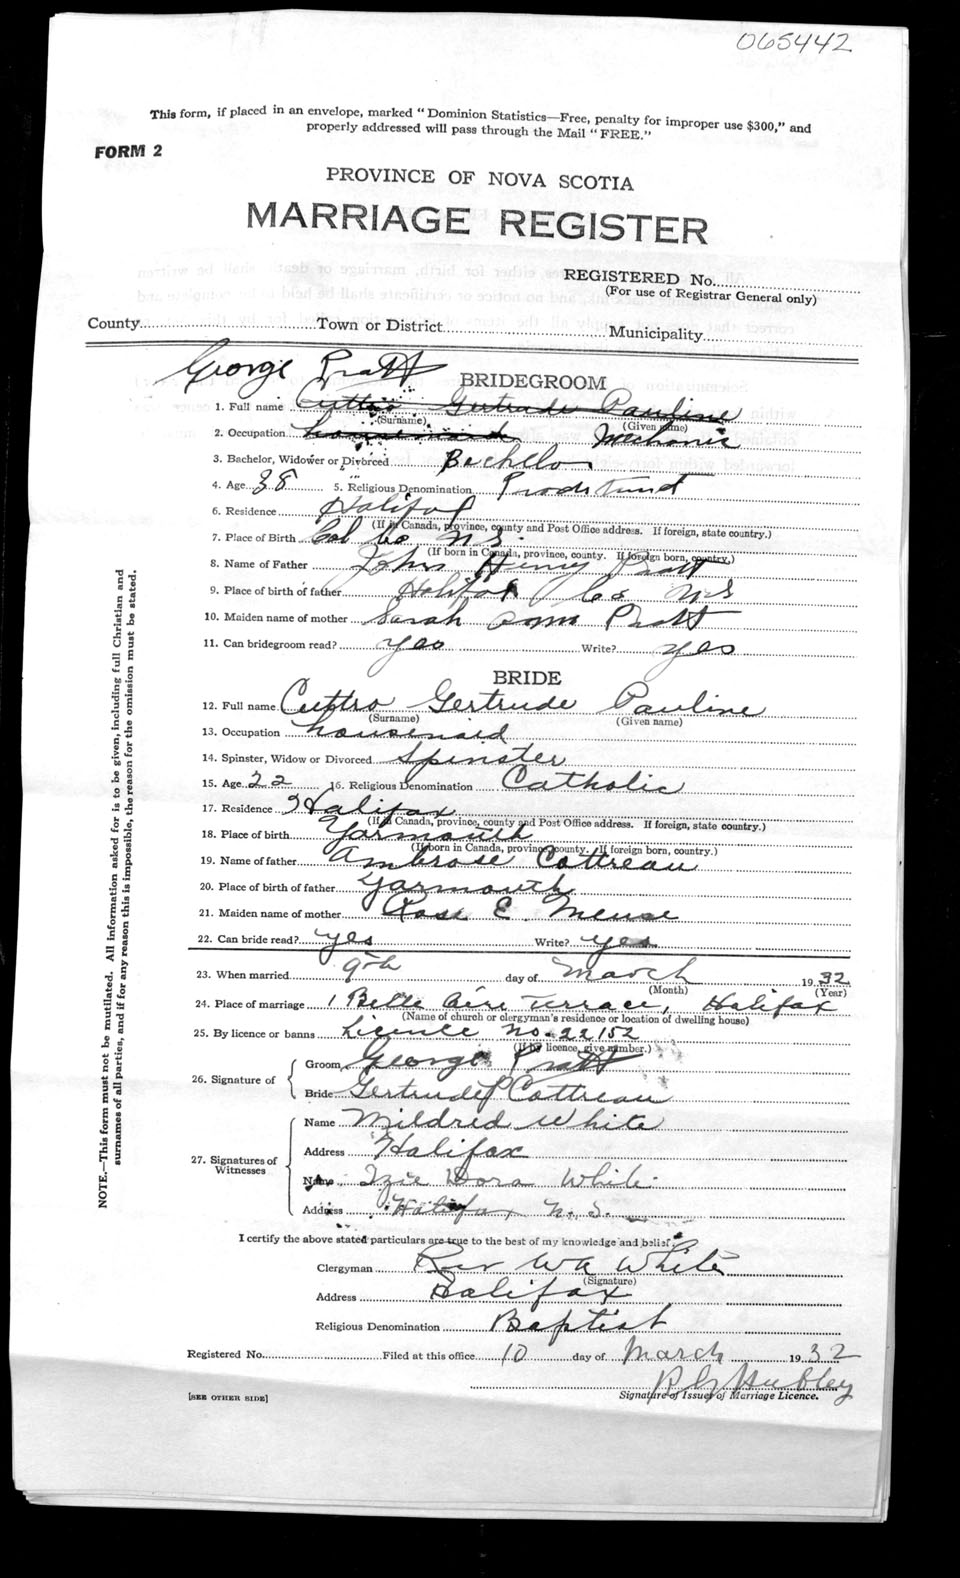 065442
This form, if placed in an envelope, marked "Dominion Statistics—Free, penalty for improper use $300," and
properly addressed will pass through the Mail "FREE."
FORM 2
PROVINCE OF NOVA SCOTIA
MARRIAGE REGISTER
REGISTERED No.
(For use of Registrar General only)
County Town or District Municipality
George Pratt
BRIDEGROOM
1. Full name Cuttro Gertrude Pauline
(Surname) (Given name)
2. Occupation housemaid Mechanic
3. Bachelor, Widower or Divorced Bachelor
4. Age 38 5. Religious Denomination
6. Residence Halifax
(If in Canada, province, county and Post Office address. If foreign, state country.)
7. Place of Birth Co N.S.
(If born in Canada, province, county. If foreign born, country.)
8. Name of Father John Henry Pratt
9. Place of birth of father Halifax Co N-S
10. Maiden name of mother Sarah Ann Pratt
11. Can bridegroom read? yes Write? yes
BRIDE
12. Full name Cuttro Gertrude Pauline
(Surname) (Given name)
13. Occupation housemaid
14. Spinster, Widow or Divorced Spinster
15. Age 22 16. Religious Denomination Catholic
17. Residence Halifax
(If in Canada, province, county and Post Office address. If foreign, state country.)
18. Place of birth Yarmouth
(If born in Canada, province, county. If foreign born, country.)
19. Name of father Ambrose Cottreau
20. Place of birth of father Yarmouth
21. Maiden name of mother Rose E. Meuse
22. Can bride read? yes Write? yes
23. When married 9th day of March 1932
(Month) (Year)
24. Place of marriage 1 Belle Aire Terrace, Halifax
(Name of church or clergyman's residence or location of dwelling house)
25. By licence or banns Licence No. 22152
(If by licence, give number.)
26. Signature of
Groom George Pratt
Bride Gertrude P Cottreau
27. Signatures of Witnesses
Name Mildred White
Address Halifax
Name Izie Dora White
Address Halifax N.S.
I certify the above stated particulars are true to the best of my knowledge and belief.
Clergyman Rev W A White
(Signature)
Address Halifax
Religious Denomination Baptist
Registered No. Filed at this office 10 day of March 1932
R G Hubley
[SEE OTHER SIDE] Signature of Issuer of Marriage Licence.
NOTE.—This form must not be mutilated. All information asked for is to be given, including full Christian and
surnames of all parties, and if for any reason this is impossible, the reason for the omission must be stated.